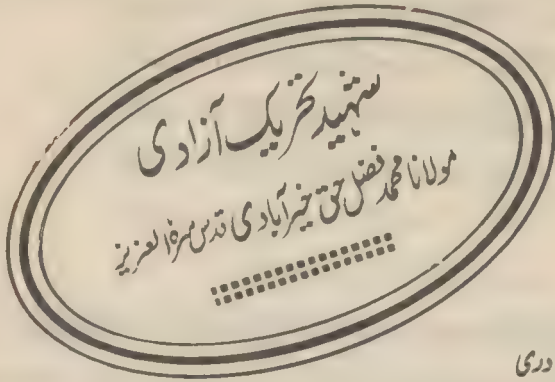 شہید تحریک آزادی
مولانا محمد فضل حق خیرآبادی قدس سرہٗ العزیز
دری